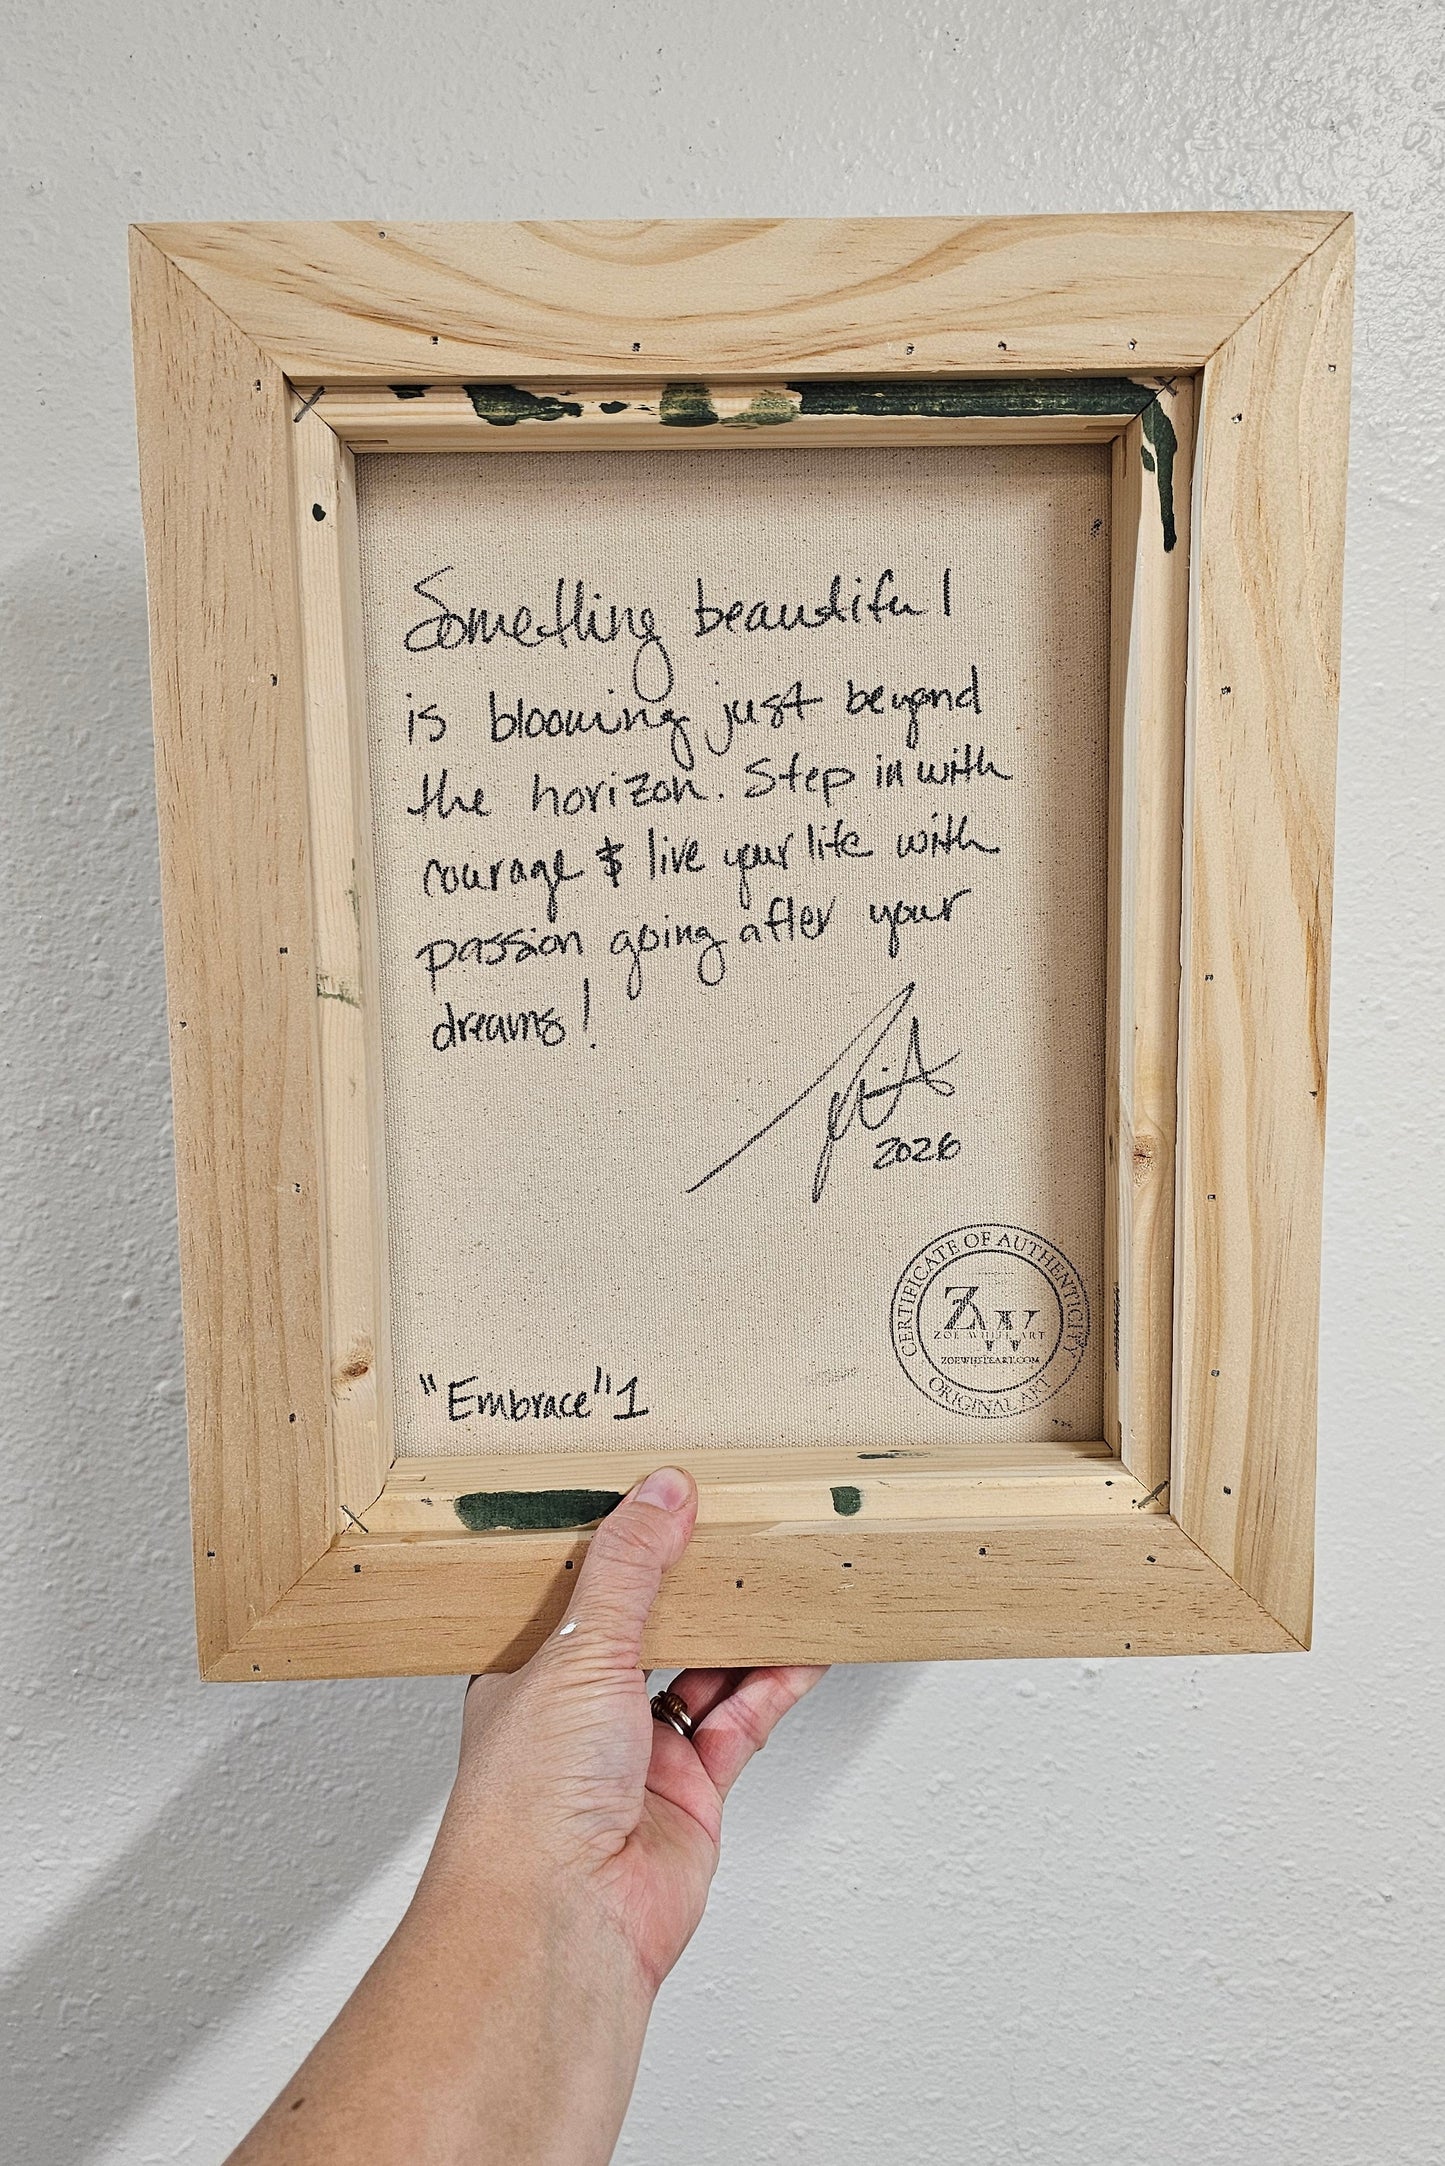 Something beautiful
is blooming just beyond
the horizon. Step in with
courage & live your life with
passion going after your
dreams!
2026
CERTIFICATE OF AUTHENTICITY
ZW
ZOE WHITE ART
ZOEWHITEART.COM
ORIGINAL ART
"Embrace" 1